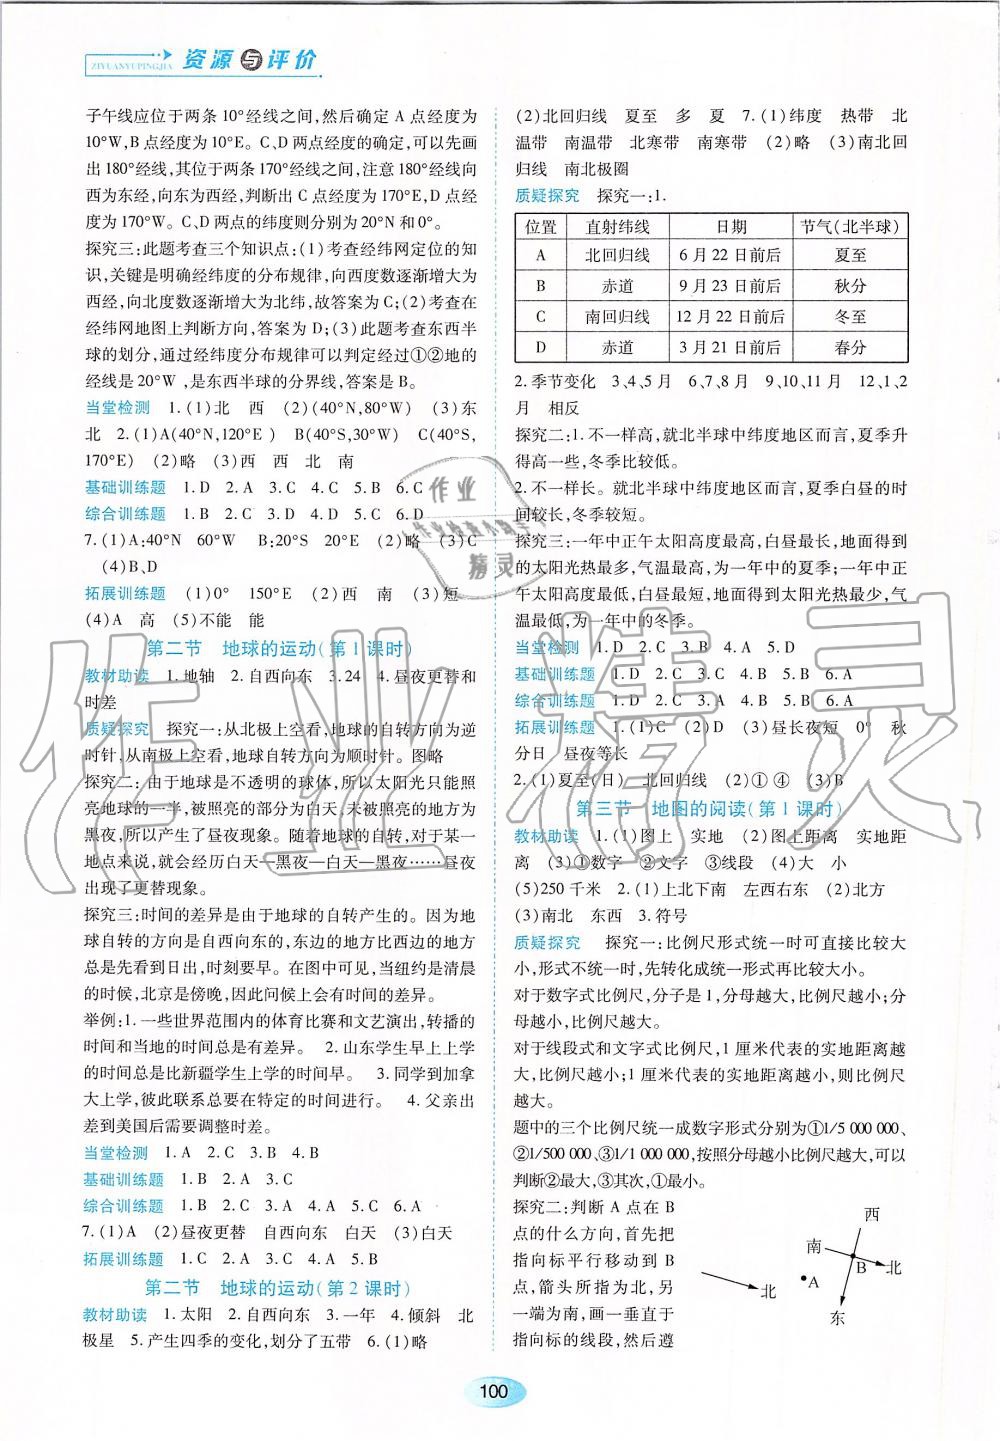 ZIYUANYUPINGJIA 资源与评价
子午线应位于两条 10°经线之间,然后确定 A 点经度为
10°W,B 点经度为 10°E。C、D 两点经度的确定,可以先画
出 180°经线,其位于两条 170°经线之间,注意 180°经线向
西为东经,向东为西经,判断出 C 点经度为 170°E,D 点经
度为 170°W。C、D 两点的纬度则分别为 20°N 和 0°。
探究三:此题考查三个知识点:(1)考查经纬网定位的知
识,关键是明确经纬度的分布规律,向西度数逐渐增大为
西经,向北度数逐渐增大为北纬,故答案为 C;(2)考查在
经纬网地图上判断方向,答案为 D;(3)此题考查东西半
球的划分,通过经纬度分布规律可以判定经过①②地的
经线是 20°W ,是东西半球的分界线,答案是 B。
当堂检测 1.(1)北 西 (2)(40°N,80°W) (3)东
北 2.(1)A(40°N,120°E) B(40°S,30°W) C(40°S,
170°E) (2)略 (3)西 西 北 南
基础训练题 1.D 2.A 3.C 4.C 5.B 6.C
综合训练题 1.B 2.C 3.D 4.D 5.C 6.D
7.(1)A:40°N 60°W B:20°S 20°E (2)略 (3)C
(4)B、D
拓展训练题 (1)0° 150°E (2)西 南 (3)短
(4)A 高 (5)不能 能
第二节 地球的运动(第 1 课时)
教材助读 1.地轴 2.自西向东 3.24 4.昼夜更替和
时差
质疑探究 探究一:从北极上空看,地球的自转方向为逆
时针,从南极上空看,地球自转方向为顺时针。图略
探究二:由于地球是不透明的球体,所以太阳光只能照
亮地球的一半,被照亮的地方为白天,未被照亮的地方为
黑夜,所以产生了昼夜现象。随着地球的自转,对于某一
地点来说,就会经历白天—黑夜—白天—黑夜……昼夜
出现了更替现象。
探究三:时间的差异是由于地球的自转产生的。因为地
球自转的方向是自西向东的,东边的地方比西边的地方
总是先看到日出,时刻要早。在图中可见,当纽约是清晨
的时候,北京是傍晚,因此问候上会有时间的差异。
举例:1.一些世界范围内的体育比赛和文艺演出,转播的
时间和当地的时间总是有差异。 2.山东学生早上上学
的时间总是比新疆学生上学的时间早。 3.同学到加拿
大上学,彼此联系总要在特定的时间进行。 4.父亲出
差到美国后需要调整时差。
当堂检测 1.A 2.C 3.B 4.B
基础训练题 1.B 2.A 3.C
综合训练题 1.B 2.C 3.D 4.A 5.C 6.A
7.(1)A (2)昼夜更替 自西向东 白天 (3)白天
拓展训练题 1.C 2.A 3.A 4.A 5.B
第二节 地球的运动(第 2 课时)
教材助读 1.太阳 2.自西向东 3.一年 4.倾斜 北
极星 5.产生四季的变化,划分了五带 6.(1)略
(2)北回归线 夏至 多 夏 7.(1)纬度 热带 北
温带 南温带 北寒带 南寒带 (2)略 (3)南北回
归线 南北极圈
质疑探究 探究一:1.
位置 直射纬线 日期 节气(北半球)
A 北回归线 6 月 22 日前后 夏至
B 赤道 9 月 23 日前后 秋分
C 南回归线 12 月 22 日前后 冬至
D 赤道 3 月 21 日前后 春分
2.季节变化 3、4、5 月 6、7、8 月 9、10、11 月 12、1、2
月 相反
探究二:1.不一样高,就北半球中纬度地区而言,夏季升
得高一些,冬季比较低。
2.不一样长。就北半球中纬度地区而言,夏季白昼的时
间较长,冬季较短。
探究三:一年中正午太阳高度最高,白昼最长,地面得到
的太阳光热最多,气温最高,为一年中的夏季;一年中正
午太阳高度最低,白昼最短,地面得到太阳光热最少,气
温最低,为一年中的冬季。
当堂检测 1.D 2.A 3.C 4.A 5.D
基础训练题 1.D 2.C 3.C 4.B 5.B 6.A
综合训练题 1.D 2.C 3.A 4.B 5.B 6.A
拓展训练题 1.(1)C (2)D (3)昼长夜短 0° 秋
分日 昼夜等长
2.(1)夏至(日) 北回归线 (2)① ④ (3)B
第三节 地图的阅读(第 1 课时)
教材助读 1.(1)图上 实地 (2)图上距离 实地距
离 (3)①数字 ②文字 ③线段 (4)大 小
(5)250 千米 2.(1)上北下南 左西右东 (2)北方
(3)南北 东西 3.符号
质疑探究 探究一:比例尺形式统一时可直接比较大
小,形式不统一时,先转化成统一形式再比较大小。
对于数字式比例尺,分子是 1,分母越大,比例尺越小;分
母越小,比例尺越大。
对于线段式和文字式比例尺,1 厘米代表的实地距离越
大,比例尺越小;1 厘米代表的实地距离越小,则比例尺
越大。
题中的三个比例尺统一成数字形式分别为①1/5 000 000、
②1/500 000、③1/1 000 000,按照分母越小比例尺越大,可以
判断②最大,③其次,①最小。
探究二:判断 A 点在 B
点的什么方向,首先把
指向标平行移动到 B
点,箭头所指为北,另
一端为南,画一垂直于
指向标的线段,然后遵
北
西
南
B
北
A
东
100
作业精灵
作业
作业检查小助手
精灵